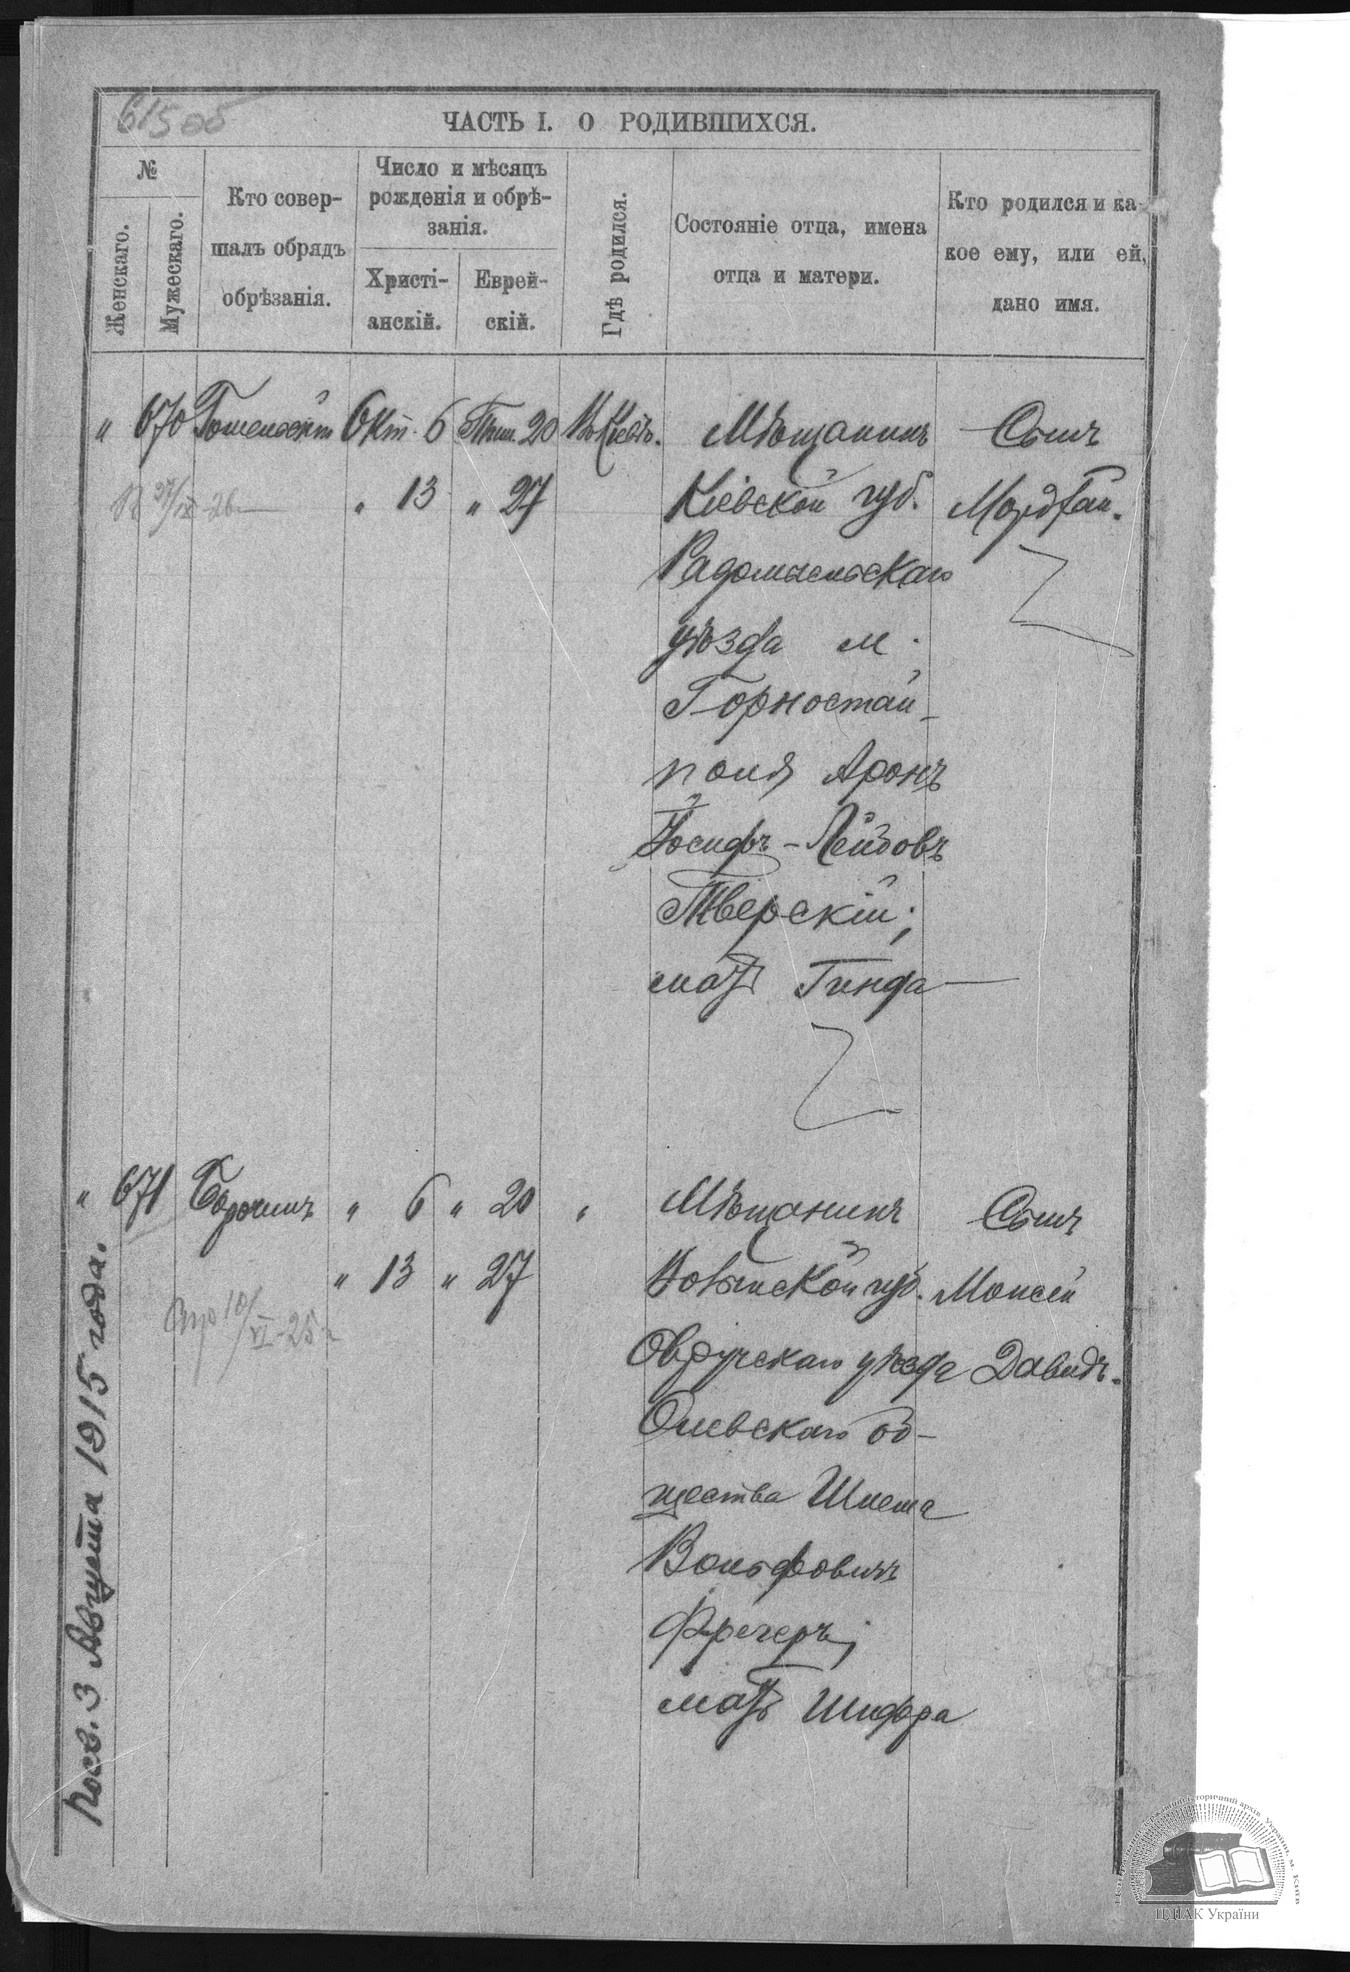 615 об
ЧАСТЬ I. О РОДИВШИХСЯ.
№
Женскаго.
Мужескаго.
Кто совер-
шалъ обрядъ
обрѣзанія.
Число и мѣсяцъ
рожденія и обрѣ-
занія.
Христі-
анскій.
Еврей-
скій.
Гдѣ родился.
Состояніе отца, имена
отца и матери.
Кто родился и ка-
кое ему, или ей,
дано имя.
" 670 Гомельскій Окт. 6 Тиш. 20 Въ Кіевѣ. Мѣщанинъ Сынъ
27/IX-26 " 13 " 27 Кіевской губ. Мордхай.
Радомысльскаго
уѣзда м.
Горностай-
поля Аронъ
Іосифъ-Лейбовъ
Тверскій;
мать Гинда
" 671 " 6 " 20 " Мѣщанинъ Сынъ
" 13 " 27 Волынской губ. Моисей
10/VI-25 Овручскаго уѣзда Давидъ.
Олевскаго об-
щества Шлема
Вольфовичъ
мать Шифра
3 Августа 1915 года.
ЦДІАК України